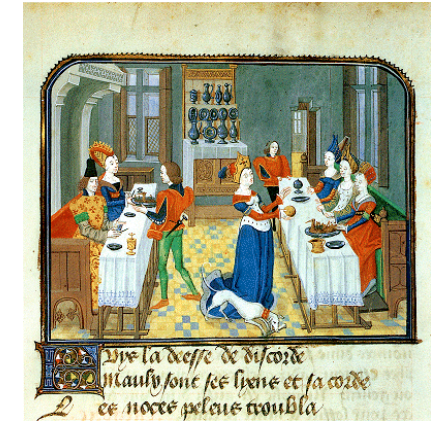 Fuys la deesse de discorde
Maulx sont ses lyens et sa corde
Les noces peleus troubla